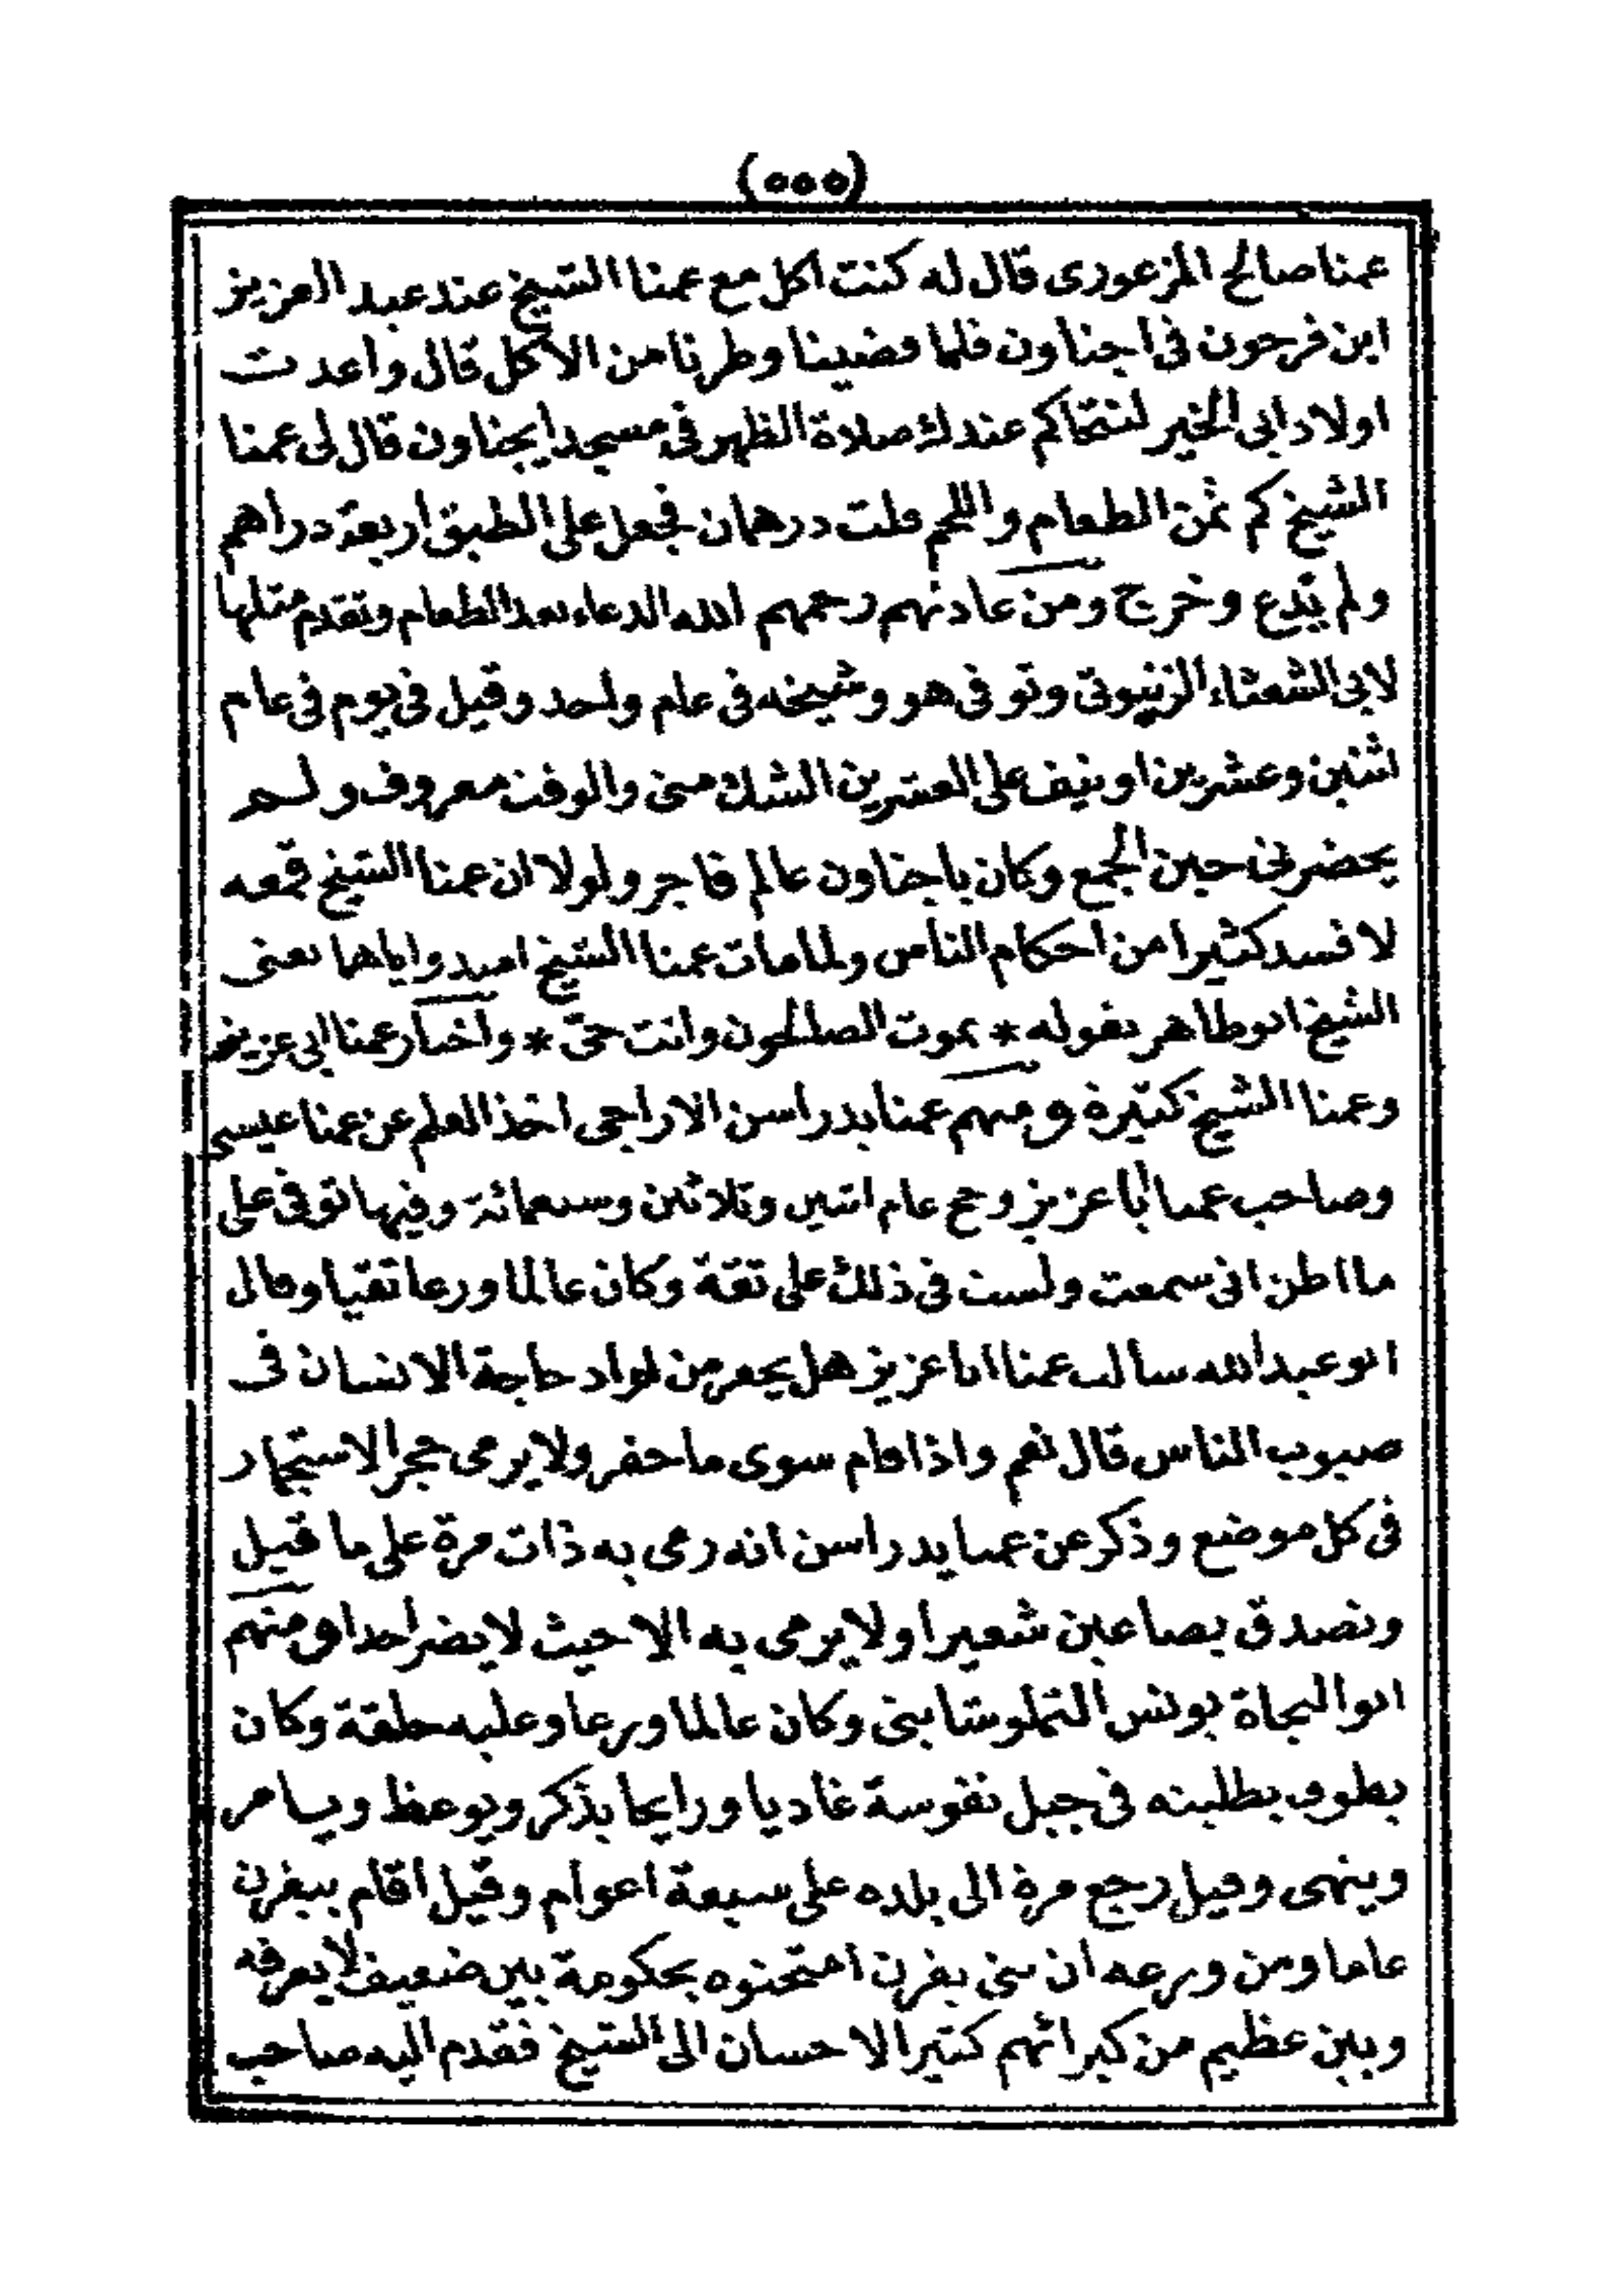 (٥٥٥)
عمنا صالح المزعورى قال له كنت اكل مع عمنا الشيخ عند عبد العزيز
ابن فرحون فى اجناون فلما قضينا وطرنا من الاكل قال واعدت
اولاد ابى الخير لنتحاكم عندك صلاة الظهر فى مسجد ايجناون قال لى عمنا
الشيخ كم ثمن الطعام واللحم قلت درهمان فجعل على الطبق اربعة دراهم
ولم يدع وخرج ومن عادتهم رحمهم الله الدعاء بعد الطعام وتقدم مثلها
لابى الشعثاء الزنبوتى وتوفى هو وشيخه فى عام واحد وقيل فى يوم فى عام
اثنين وعشرين او نيف على العشرين الشك منى والوقت معروف ولم
يحضرنى حين الجمع وكان باجناون عالم فاجر ولولا ان عمنا الشيخ قمعه
لافسد كثيرا من احكام الناس ولما مات عمنا الشيخ اميد واياها يعنى
الشيخ ابو طاهر بقوله * يموت الصالحون وانت حى * واخبار عمنا ابى عزيز
وعمنا الشيخ كثيرة ومنهم عمنا يدراسن الاراجى اخذ العلم عن عمنا عيسى
وصاحب عمنا ابا عزيز وحج عام اثنين وثلاثين وسبعمائة وفيها توفى على
ما اظن انى سمعت ولست فى ذلك على ثقة وكان عالما ورعا تقيا وقال
ابو عبد الله سالت عمنا ابا عزيز هل يحفر من اراد حاجة الانسان فى
صبوب الناس قال نعم واذا قام سوى ما حفر ولا يرمى حجر الاستجمار
فى كل موضع وذكر عن عمنا يدراسن انه رمى به ذات مرة على ما قيل
وتصدق بصاعين شعيرا ولا يرمى به الا حيث لا يضر احدا ومنهم
ابو النجاة يونس التملوشايتى وكان عالما ورعا وعليه حلقة وكان
يطوف بطلبته فى جبل نفوسة غاديا ورايحا يذكر ويوعظ ويامر
وينهى وقيل رجع مرة الى بلده على سبعة اعوام وقيل اقام بيفرن
عاما ومن ورعه ان بنى يفرن امتحنوه بحكومة بين ضعيف لا يعرفه
وبين عظيم من كبرائهم كثير الاحسان الى الشيخ فقدم اليه صاحب